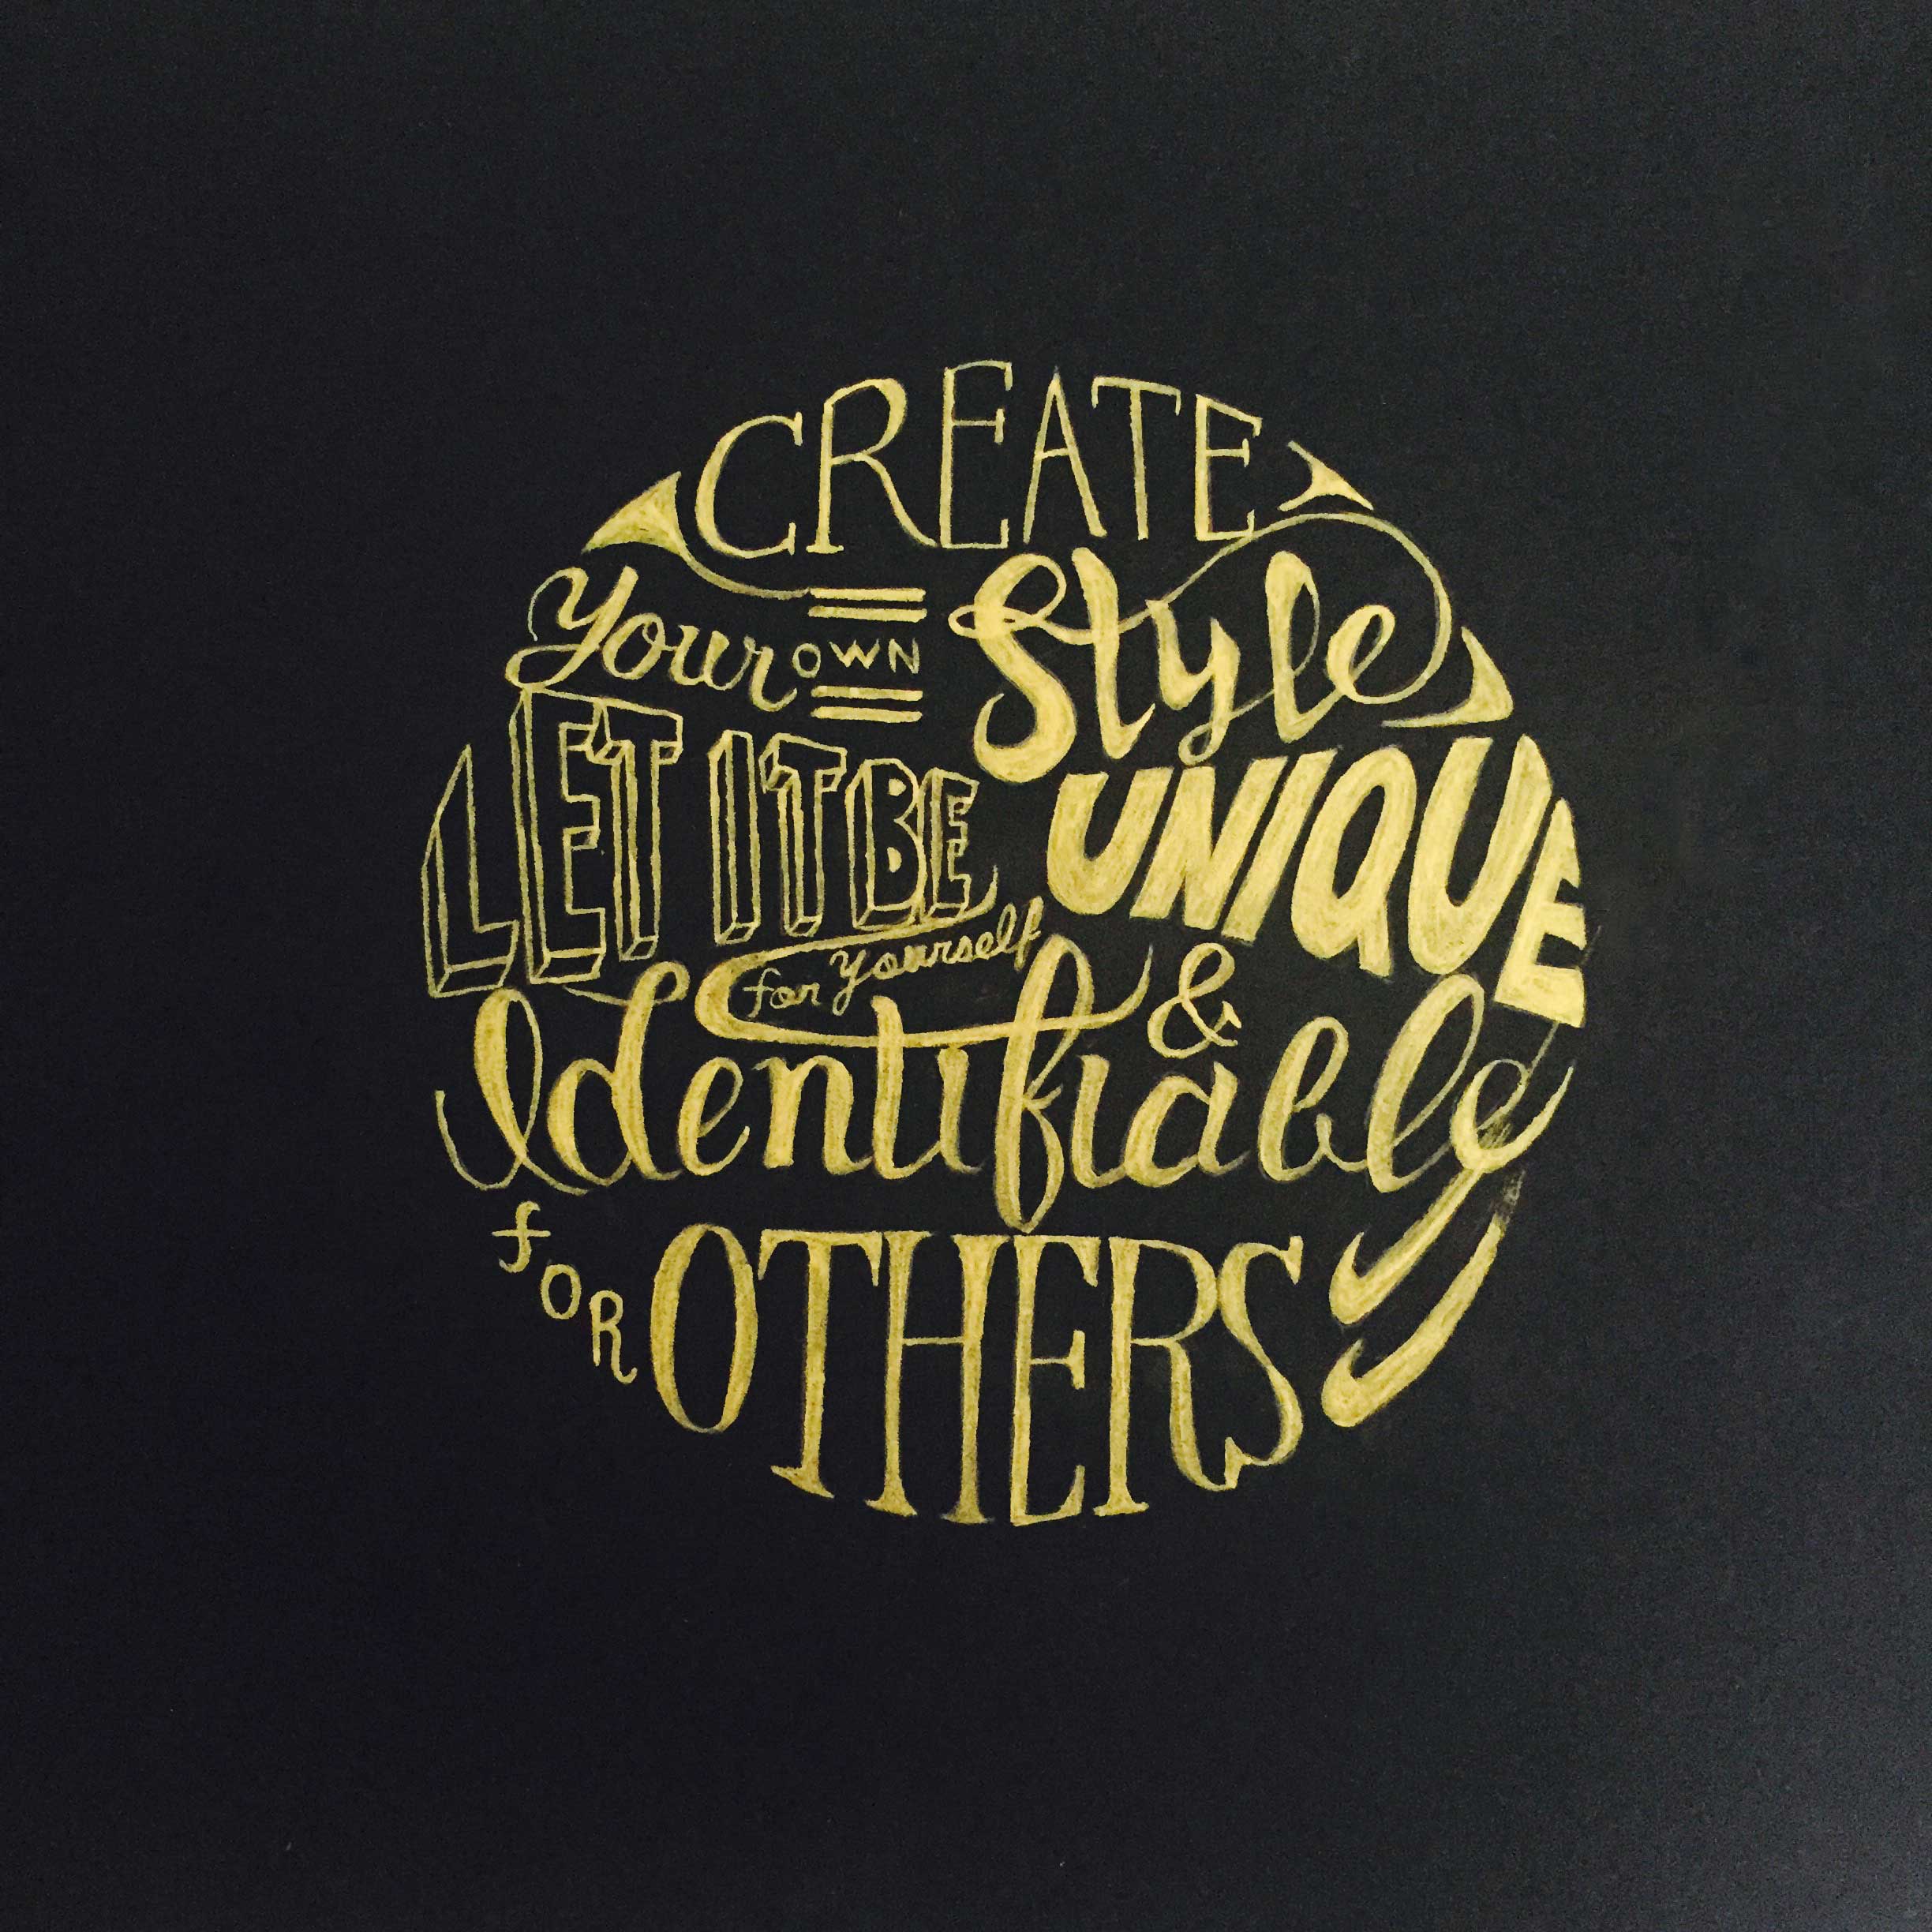 CREATE
Your OWN Style
LET IT BE UNIQUE
for yourself &
Identifiable
fOR OTHERS